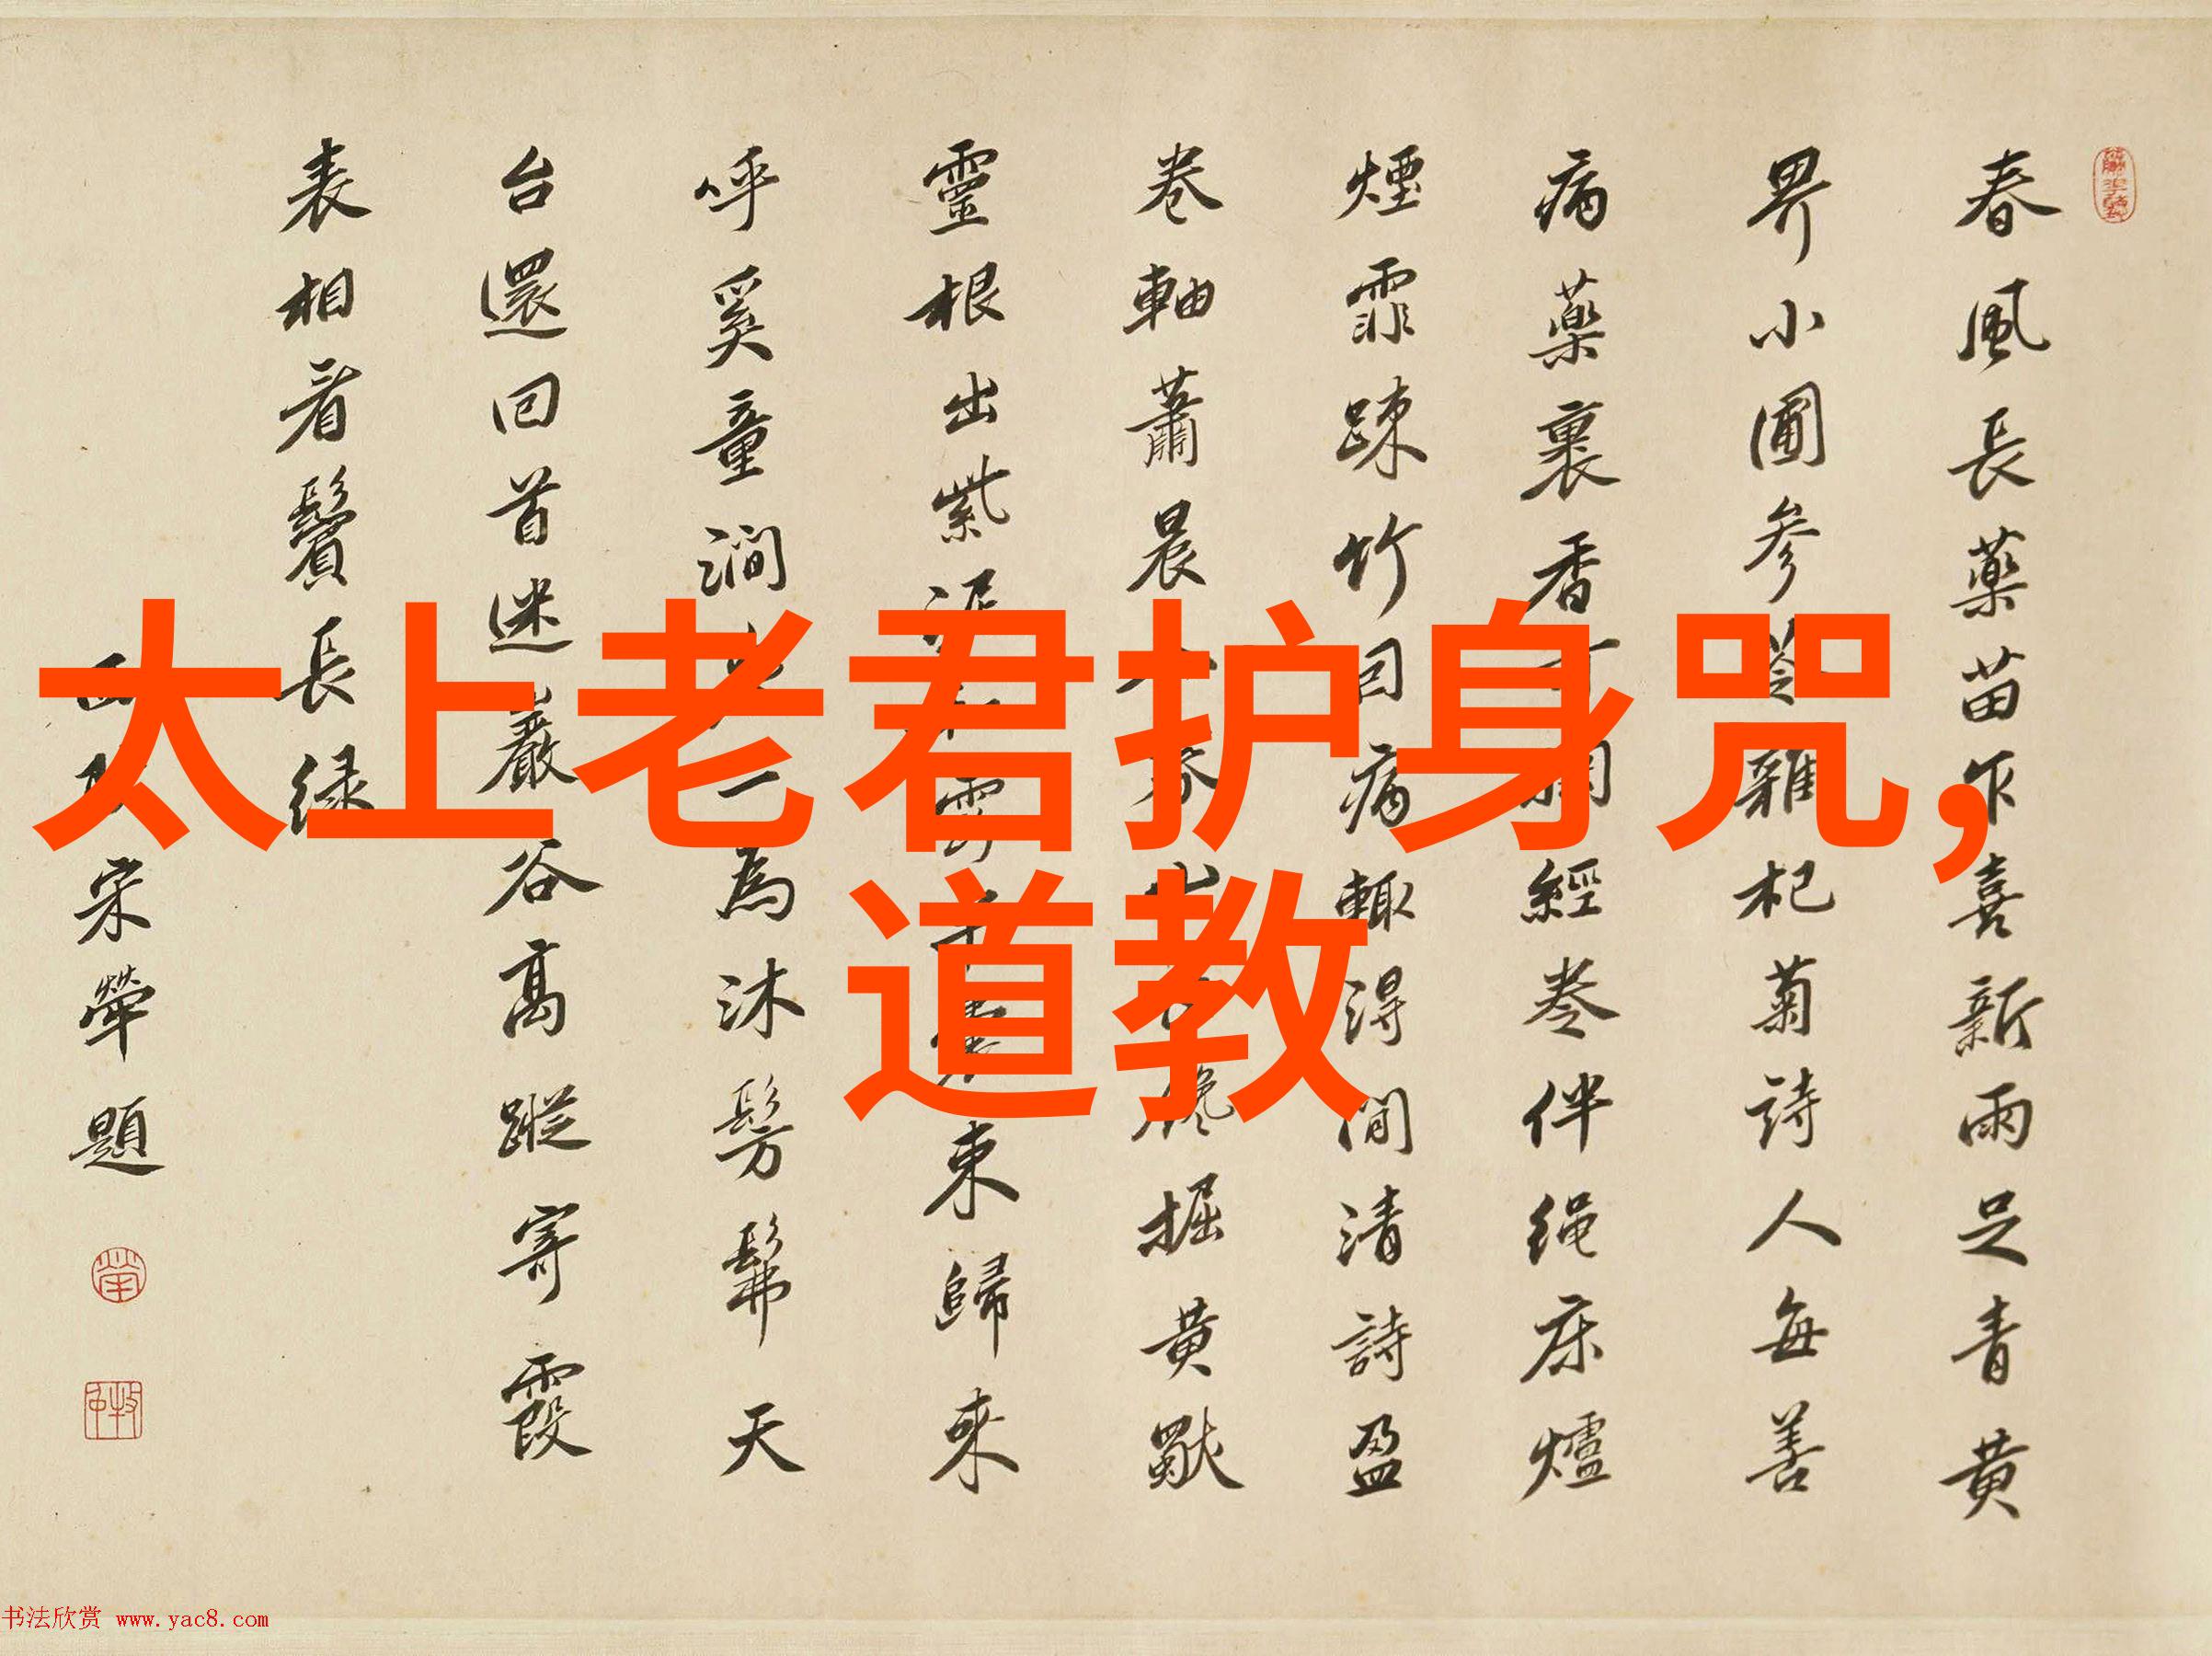 春風長藥苗乍喜新雨足青黄
界小圃參苓雜杞菊詩人每善
病藥裹香經卷伴绳床爐
煙霏踈竹因病輒得閒清詩盈
卷軸蕭晨掘黄獨
靈根出紫泥東歸來
呼奚童澗一為沐髣髴天
台還回首迷巖谷高蹤寄霞
表相看鬢長緑
西陂宋犖題
太上老君护身咒,
道教
书法欣赏 www.yac8.com